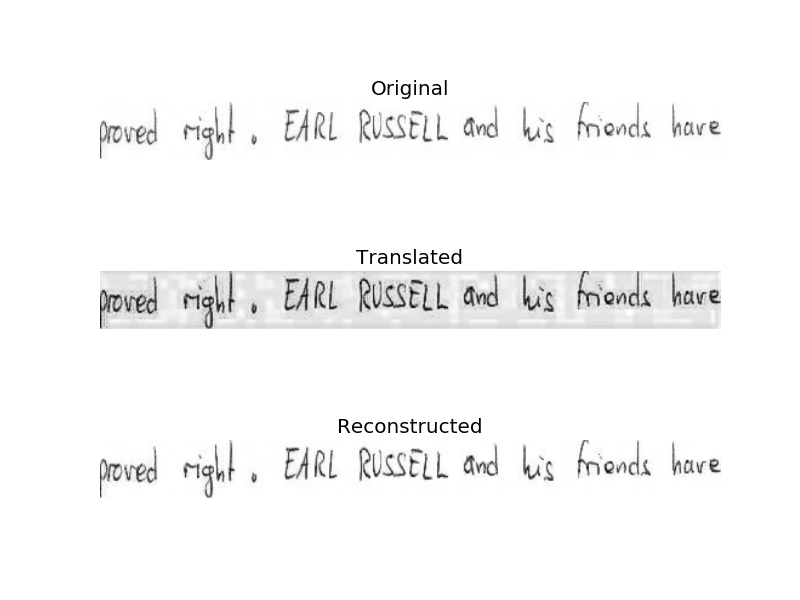 Original
proved right. EARL RUSSELL and his friends have
Translated
proved right. EARL RUSSELL and his friends have
Reconstructed
proved right. EARL RUSSELL and his friends have